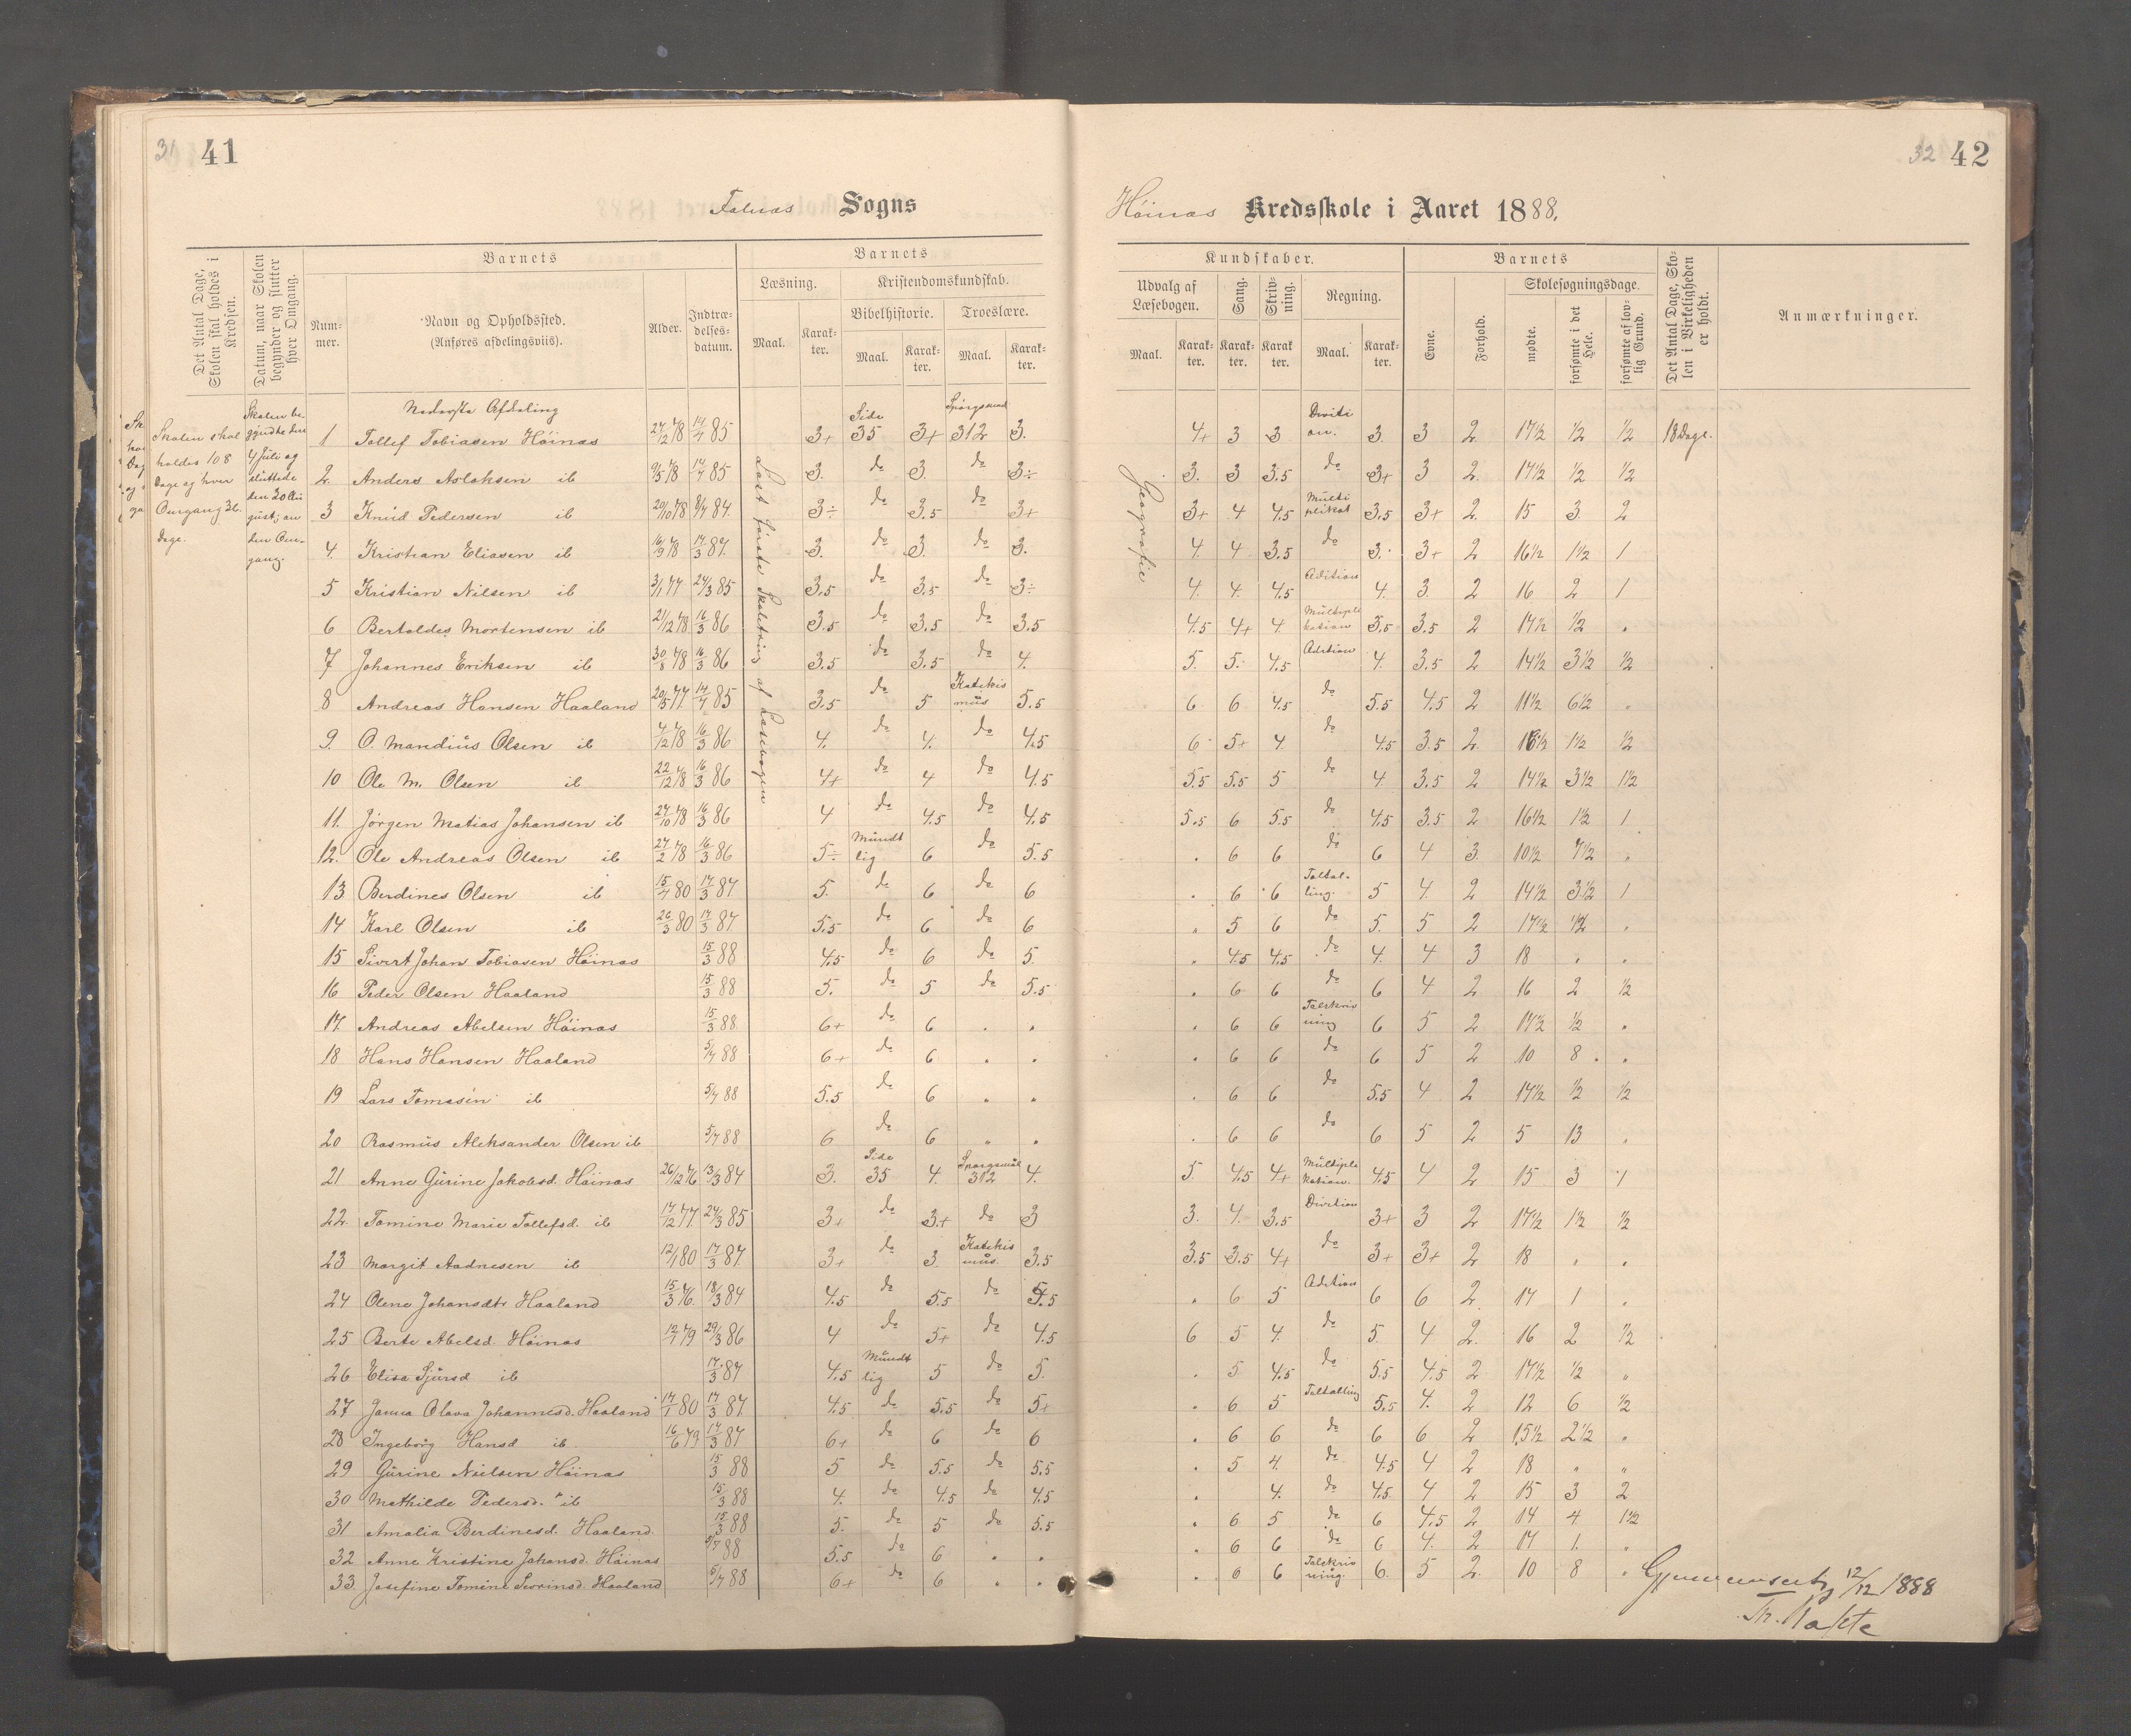 31 41
Falnæs Sogns
Det Antal Dage, Skolen skal holdes i Kredsen.
Datum, naar Skolen begynder og slutter hver Omgang.
Barnets
Nummer.
Navn og Opholdssted.
(Anføres afdelingsviis).
Alder.
Indtrædelsesdatum.
Barnets
Læsning.
Maal.
Karakter.
Kristendomskundskab.
Bibelhistorie.
Troeslære.
Maal.
Karakter.
Maal.
Karakter.
Skolen skal
holdes 108
Dage og hver
Omgang 36
dage.
Skolen be-
gyndte den
4 Juli og
sluttede
den 30 Au
gust, an
den Om-
gang.
Læst første Skoletrin af Læsebogen
Nederste Afdeling
1 Tollef Tobiasen Höinas 27/12 78 14/4 85 3+ Side 35 3+ Spørgsmaal 312 3.
2 Anders Aslaksen ib 9/5 78 14/4 85 3. do 3. do 3÷
3 Knud Pedersen ib 20/10 78 8/4 84 3÷ do 3.5 do 3+
4. Kristian Eliasen ib 16/9 78 17/3 87. 3. do 3. do 3.
5 Kristian Nilsen ib 3/1 77 24/3 85 3.5 do 3.5 do 3÷
6 Bertoldes Mortensen ib 21/12 78 16/3 86 3.5 do 3.5 do 3.5
7 Johannes Eriksen ib 30/8 78 16/3 86 3.5 do 3.5 do 4.
8 Andreas Hansen Haaland 20/5 77. 14/4 85 3.5 do 5 Katekismus 5.5
9. O. Mandius Olsen ib 7/12 78 16/3 86 4. do 4. do 4.5
10 Ole M. Olsen ib 22/12 78 16/3 86 4+ do 4 do 4.5
11. Jørgen Matias Johansen ib 27/10 78 16/3 86 4 do 4.5 do 4.5
12. Ole Andreas Olsen ib 27/2 78 16/3 86 5÷ Mundtlig 6 do 5.5
13 Berdines Olsen ib 15/4 80 17/3 87. 5. do 6 do 6
14 Karl Olsen ib 26/3 80 17/3 87. 5.5 do 6 do 6
15 Sivert Johan Tobiasen Höinas 15/3 88 4.5 do 6 do 5.
16 Peder Olsen Haaland 15/3 88 5. do 5 do 5.5
17. Andreas Abelsen Höinas 15/3 88 6+ do 6 " "
18 Hans Hansen Haaland 5/7 88 6+ do 6 " "
19 Lars Tomasen ib 5/7 88 5.5 do 6 " "
20 Rasmus Aleksander Olsen ib 5/7 88 6 do 6 " "
21 Anne Gurine Jakobsd. Höinas 26/12 76 13/3 84 3. Side 35 4. Spørgsmål 312 4.
22. Tomine Marie Tollefsd. ib 17/12 77. 24/3 85 3+ do 3.+ do 3
23 Margit Aadnesen ib 12/1 80 17/3 87. 3+ do 3. Katekismus 3.5
24 Olene Johansdtr Haaland 15/3 76. 18/3 84 4.5 do 5.5 do 5.5
25 Berte Abelsd. Höinas 12/1 79 29/3 86 4 do 5+ do 4.5
26 Elisa Sjursd ib 17/3 87 4.5 Mundtlig 5 do 5.
27 Janna Olava Johannesd. Haaland 17/1 80 17/3 87. 4.5 do 5.5 do 5+
28 Ingeborg Hansd ib. 16/6 79 17/3 87 6+ do 6 do 6
29 Gurine Nielsen Höinas 15/3 88 5 do 5.5 do 5.5
30 Mathilde Pedersd. ib 15/3 88 4. do 4.5 do 4.5
31 Amalia Berdinesd. Haaland. 15/3 88 5. do 5 do 5.5
32 Anne Kristine Johansd. Höinas 5/7 88 5.5 do 6 " "
33. Josefine Tomine Sevrinsd. Haaland 5/7 88 6+ do 6 " "
32 42
Höinas Kredsskole i Aaret 1888.
Kundskaber.
Udvalg af Læsebogen.
Maal.
Karakter.
Sang.
Karakter.
Skrivning.
Karakter.
Regning.
Maal.
Karakter.
Barnets
Evne.
Forhold.
Skolesøgningsdage.
mødte.
forsømte i det Hele.
forsømte af lovlig Grund.
Det Antal Dage, Skolen i Virkeligheden er holdt.
Anmærkninger.
Geografie
4+ 3 3 Division. 3. 3 2. 17½ ½ ½ 18 Dage.
3. 3 3.5 do 3+ 3 2. 17½ ½ ½
3+ 4 4.5 Multiplikat 3.5 3+ 2. 15 3. 2
4. 4 3.5 do 3. 3+ 2 16½ 1½ 1
4. 4. 4.5 Adition 4. 3. 2 16 2 1
4.5 4+ 4. Multiplikation 3.5 3.5 2 17½ ½ "
5. 5. 4.5 Adition 4. 3.5 2 14½ 3½ ½
6 6 4.5 do 5.5 4.5 2 11½ 6½ "
6 5+ 4. do 4.5 3.5 2. 16½ 1½ ½
5.5 5.5 5 do 4 3.5 2 14½ 3½ 1½
5.5 6 5.5 do 4.5 3.5 2 16½ 1½ 1
" 6 6 do 6 4 3. 10½ 7½ "
" 6 6 Taltælling. 5 4. 2 14½ 3½ 1
" 5 6 do 5. 5 2 17½ ½ "
" 4.5 4.5 do 4. 4 3 18 " "
" 6 6 do 6 4 2 16 2 ½
" 6 6 Talskrivning 6 5 2 17½ ½ "
" 6 6 do 6 5 2 10 8 "
" 6 6 do 5.5 4 2 17½ ½ ½
" 6 6 do 6 5 2 5 13 "
5. 4.5 4+ Multiplikation. 4.5 4 2 15 3 1
3. 4. 3.5 Division 3+ 3 2 17½ 1½ ½
3.5 3.5 4+ do 3+ 3+ 2 18 " "
" 6 5 Adition 6 6 2. 17 1 "
6 5 4. do 5. 4 2. 16 2 ½
" 5 4.5 do 5.5 4.5 2 17½ ½ "
" 6 5 Taltælling 5.5 4. 2 12 6 ½
" 6 6 do 6 6 2 15½ 2½ "
" 5 4. do 4.5 4 2 18 " "
" 4. do 4.5 4 2 15 3 2
" 6 5 do 6 4.5 2 14 4 1½
" 6 6 do 6 4. 2 17 1. "
" 6 6 Talskrivning. 6. 5 2. 10 8 "
Gjennemseet 12/12 1888